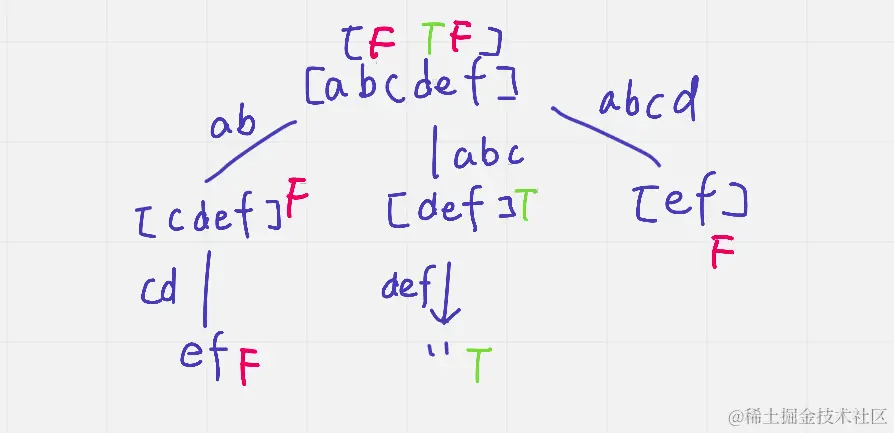 [F T F]
[abcdef]
ab
abc
abcd
[cdef] F
[def] T
[ef]
F
cd
def
ef F
" T
@稀土掘金技术社区